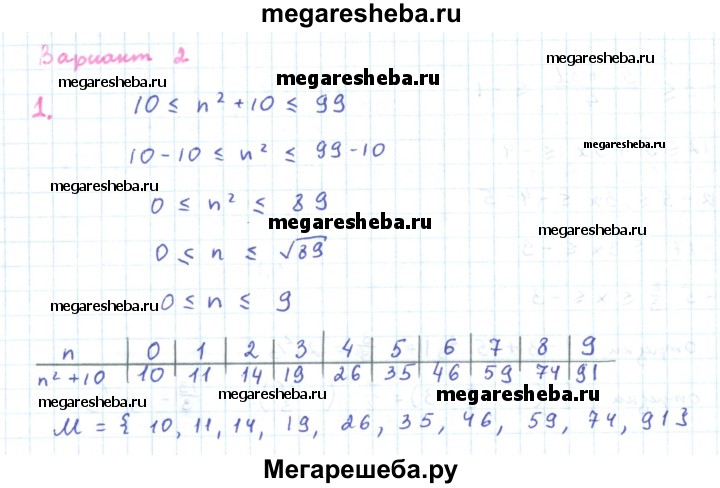 megaresheba.ru
Вариант 2
megaresheba.ru megaresheba.ru
1. 10 ≤ n² + 10 ≤ 99
megaresheba.ru
10 - 10 ≤ n² ≤ 99 - 10
megaresheba.ru
0 ≤ n² ≤ 89
megaresheba.ru
megaresheba.ru
0 ≤ n ≤ √89
megaresheba.ru
0 ≤ n ≤ 9
n 0 1 2 3 4 5 6 7 8 9
n² + 10 10 11 14 19 26 35 46 59 74 91
megaresheba.ru megaresheba.ru megaresheba.ru
M = { 10, 11, 14, 19, 26, 35, 46, 59, 74, 91 }
megaresheba.ru
Мегарешеба.ру